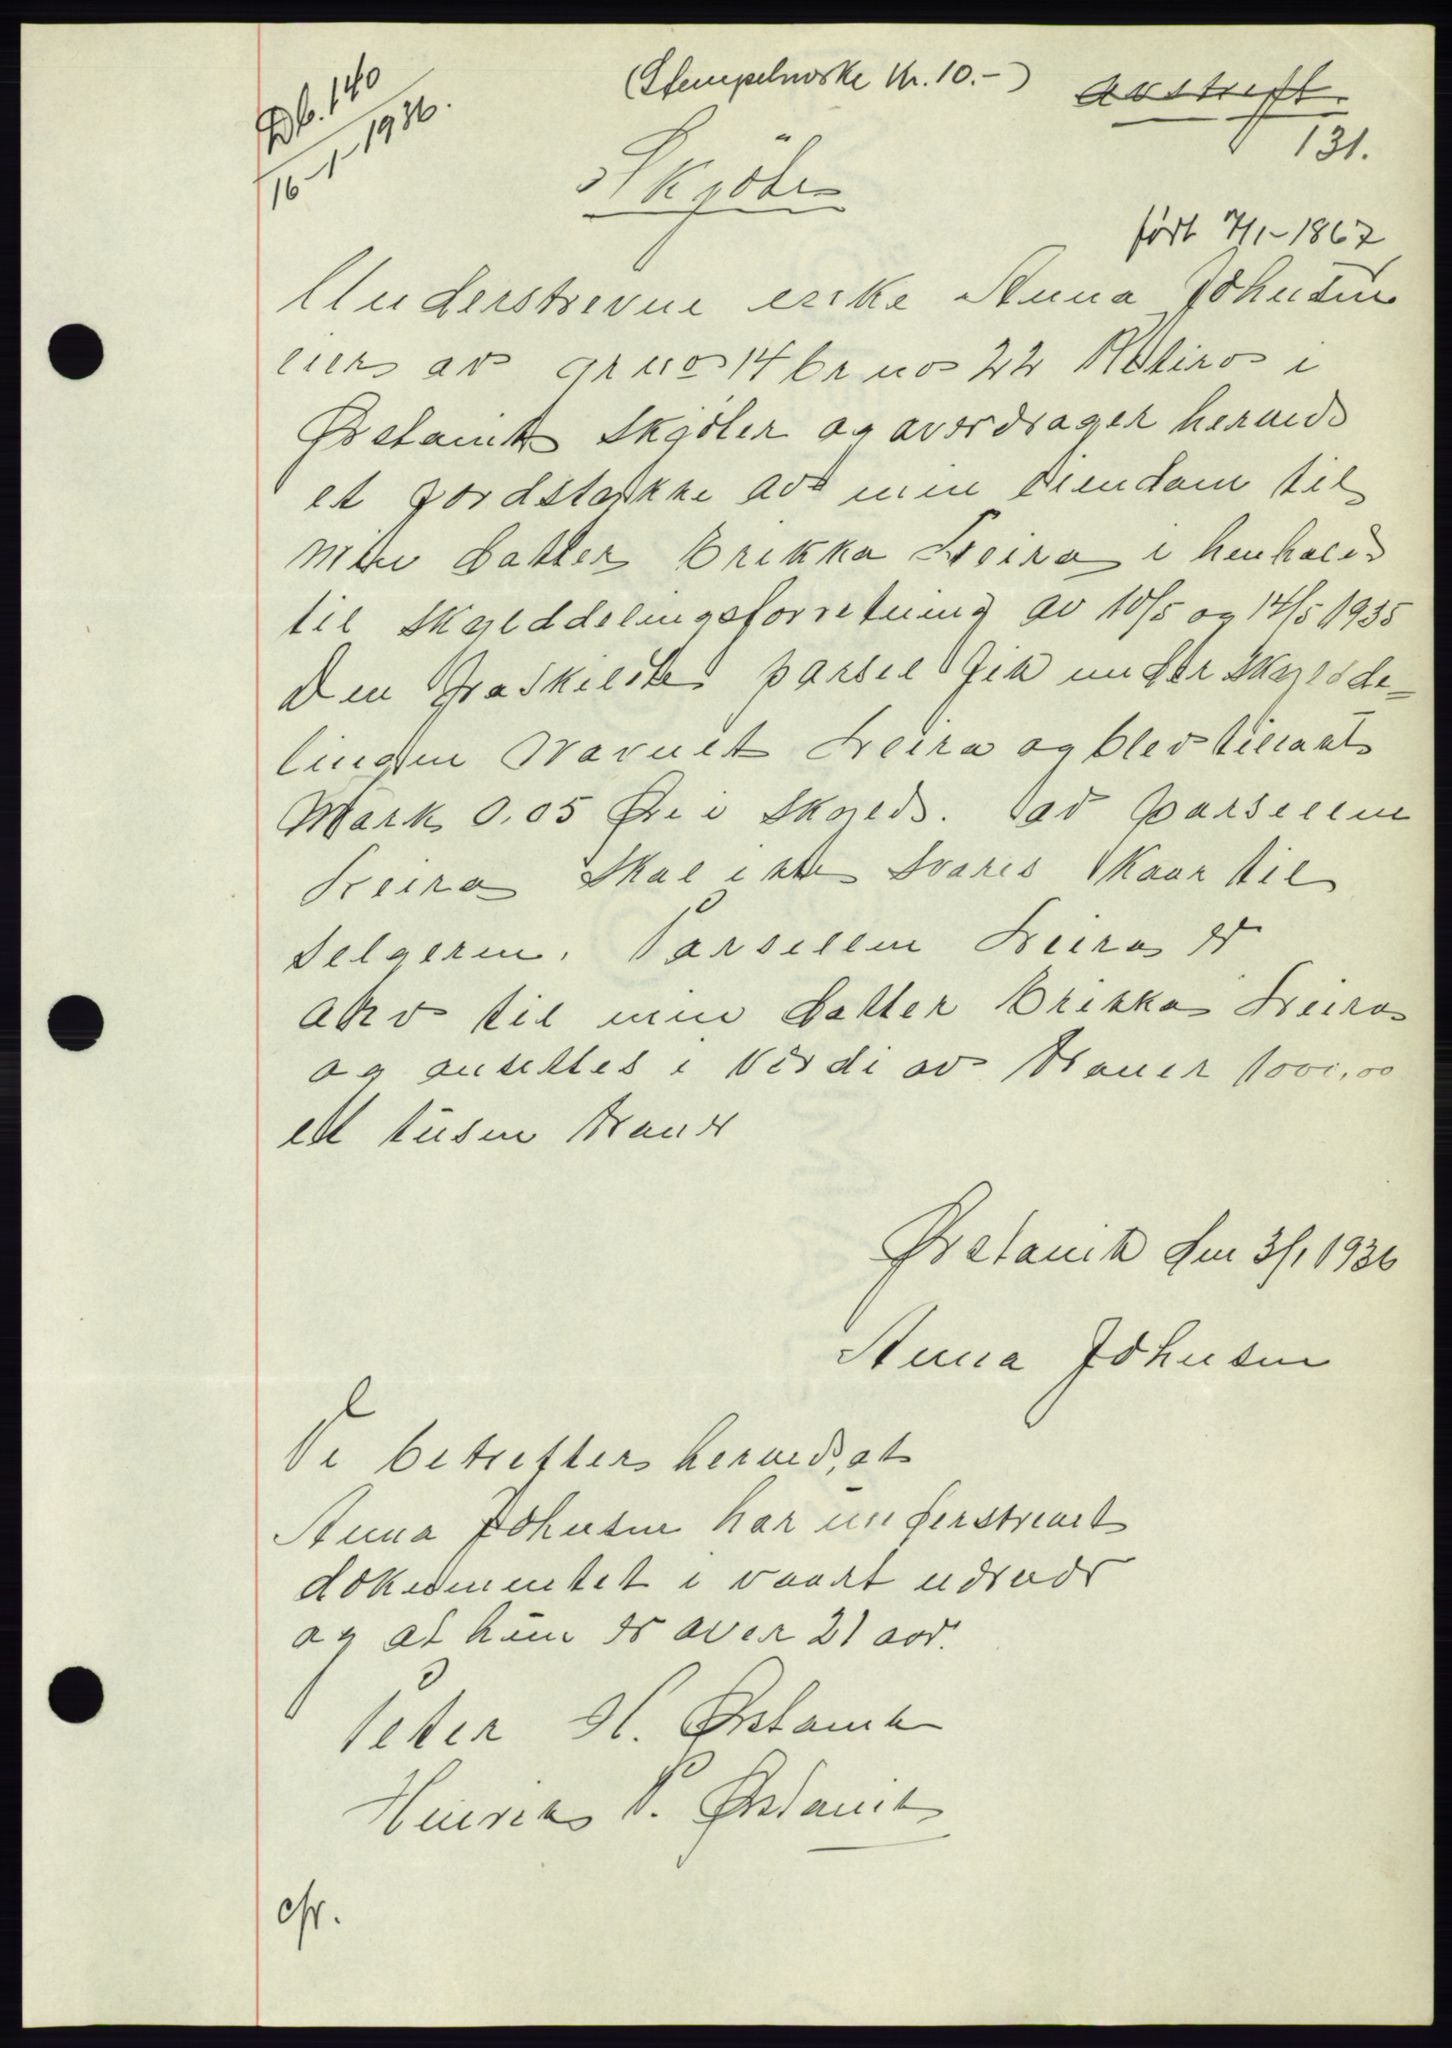 Db. 140
16-1-1936.
(Stempelmerke kr. 10.-)
avskrift.
131.
Skjöte
født 7/1-1867
Understrevne enke Anna Johnsen
eier av gr no 14 br no 22 Retiro i
Ørstavik skjöter og averdrager herved
et jordstykke av min eiendom til
min datter Erikka Leira i henhold
til skylddelingsforretning av 10/5 og 14/5 1935
Den fraskilte parsel fik under skyldde=
lingen navnet Leira og blev tillagt
Mark 0.05 Øre i skyld. av parsellen
Leira skal ikke svares Kaar til
selgeren. Parsellen Leira er
arv til min datter Erikka Leira
og ansettes i Verdi av Kroner 1000,00
et tusen kroner
Ørstavik den 3/1 1936
Anna Johnsen
Vi bekrefter herved, at
Anna Johnsen har underskrevet
dokumentet i vaart nærvær
og at hun er over 21 aar.
Peter H. Ørstavik
Henrik P. Ørstavik
cfr.